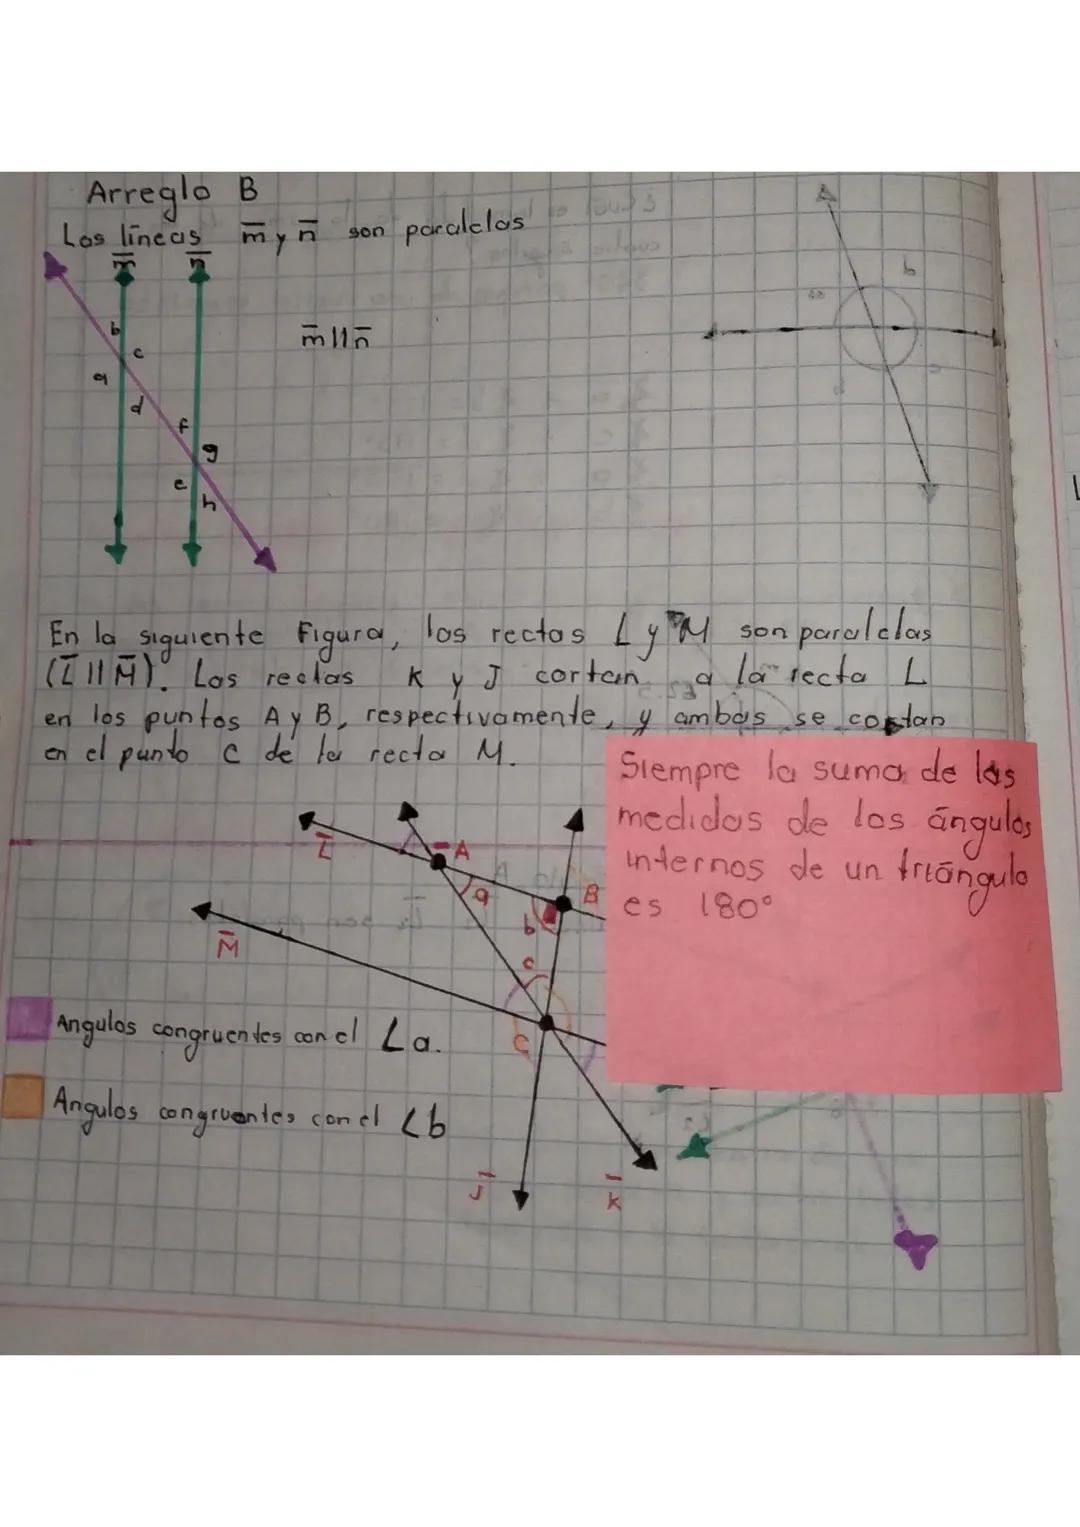 Arreglo B
Las líneas m̅ y n̅ son paralelas
m̅ n̅
b
c
a
d
f
g
e
h
m̅ || n̅
b
En la siguiente Figura, las rectas L y M son paralelas
(L̅ || M̅). Las rectas K y J cortan a la recta L
en los puntos A y B, respectivamente, y ambas se cortan
en el punto C de la recta M.
Siempre la suma de las
medidas de los ángulos
internos de un triángulo
es 180°
L̅
A
a
B
b
M̅
c
C
Angulos congruentes con el ∠a.
Angulos congruentes con el ∠b
J̅
K̅